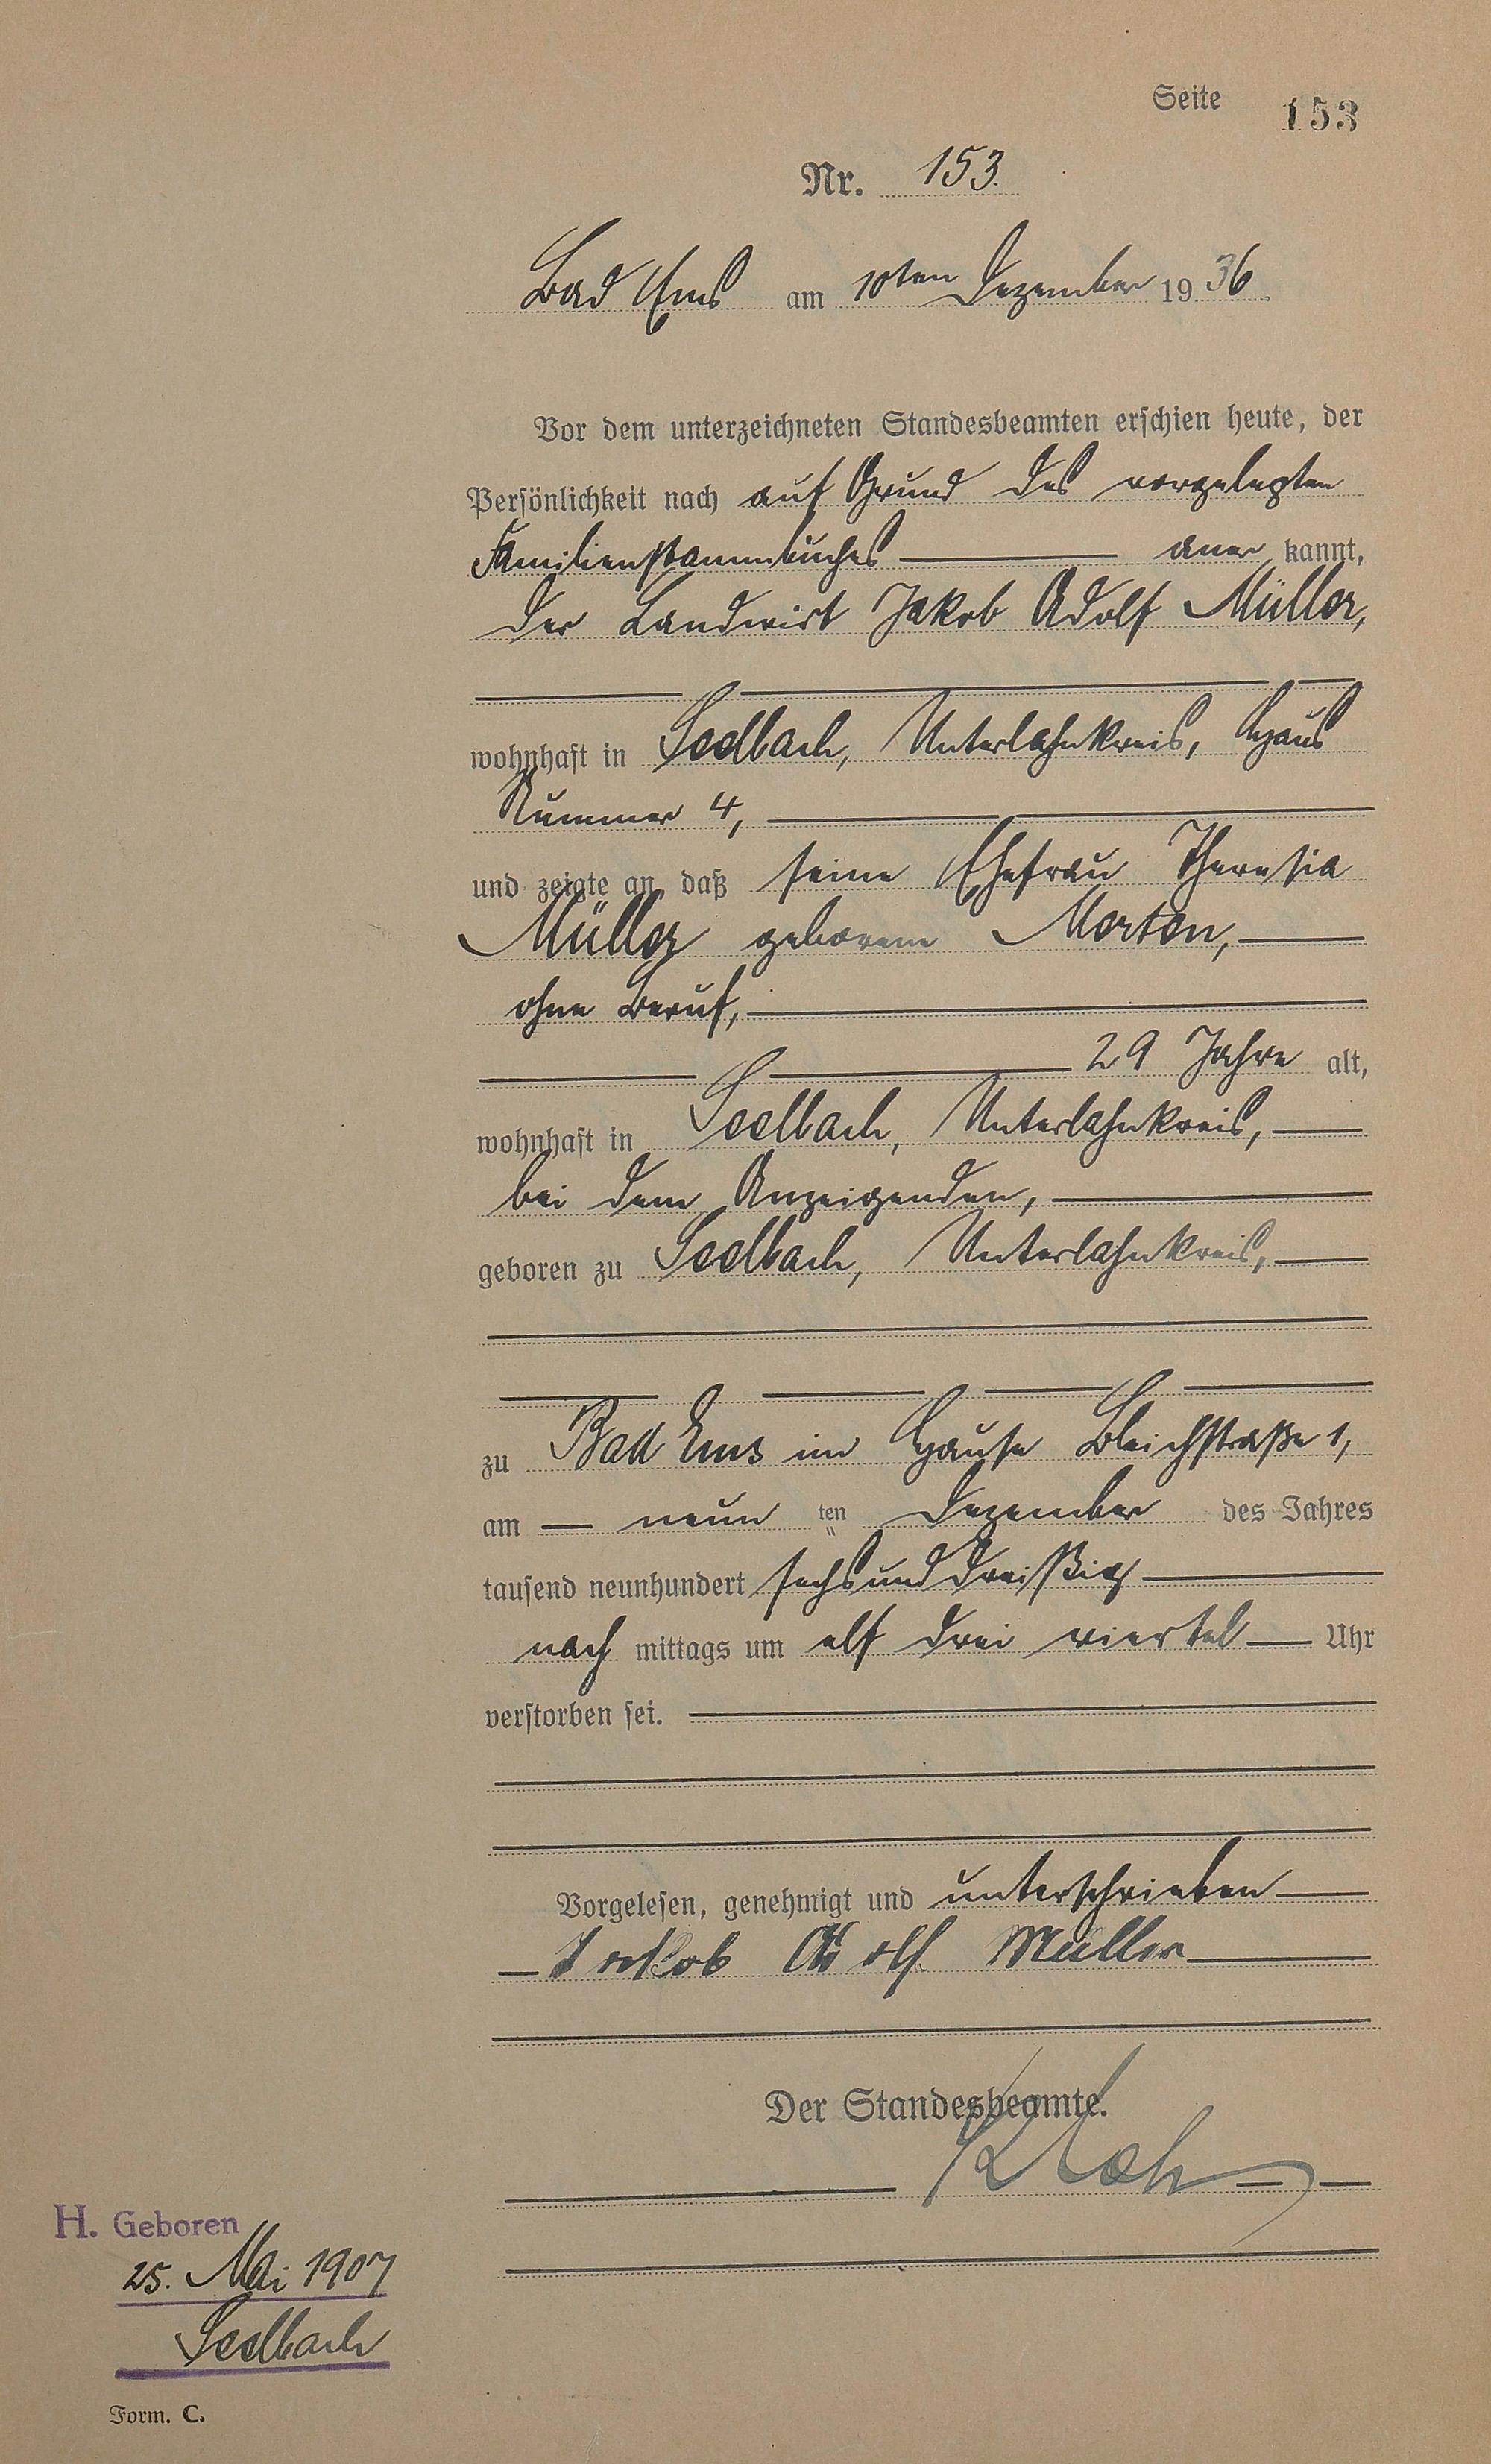 Seite 153
Nr. 153.
Bad Ems am 10ten Dezember 1936.
Vor dem unterzeichneten Standesbeamten erschien heute, der
Persönlichkeit nach auf Grund des vorgelegten
Familienstammbuches — aner kannt,
der Landwirt Jakob Adolf Müller,
wohnhaft in Seelbach, Unterlahnkreis, Haus
Nummer 4,
und zeigte an, daß seine Ehefrau Theresia
Müller geborene Morten,
ohne Beruf,
29 Jahre alt,
wohnhaft in Seelbach, Unterlahnkreis,
bei dem Anzeigenden,
geboren zu Seelbach, Unterlahnkreis,
zu Bad Ems im Hause Bleichstraße 1,
am — neun ten Dezember des Jahres
tausend neunhundert sechsunddreißig
nach mittags um elf drei viertel — Uhr
verstorben sei.
Vorgelesen, genehmigt und unterschrieben
Jakob Adolf Müller
Der Standesbeamte.
H. Geboren
25. Mai 1907
Seelbach
Form. C.